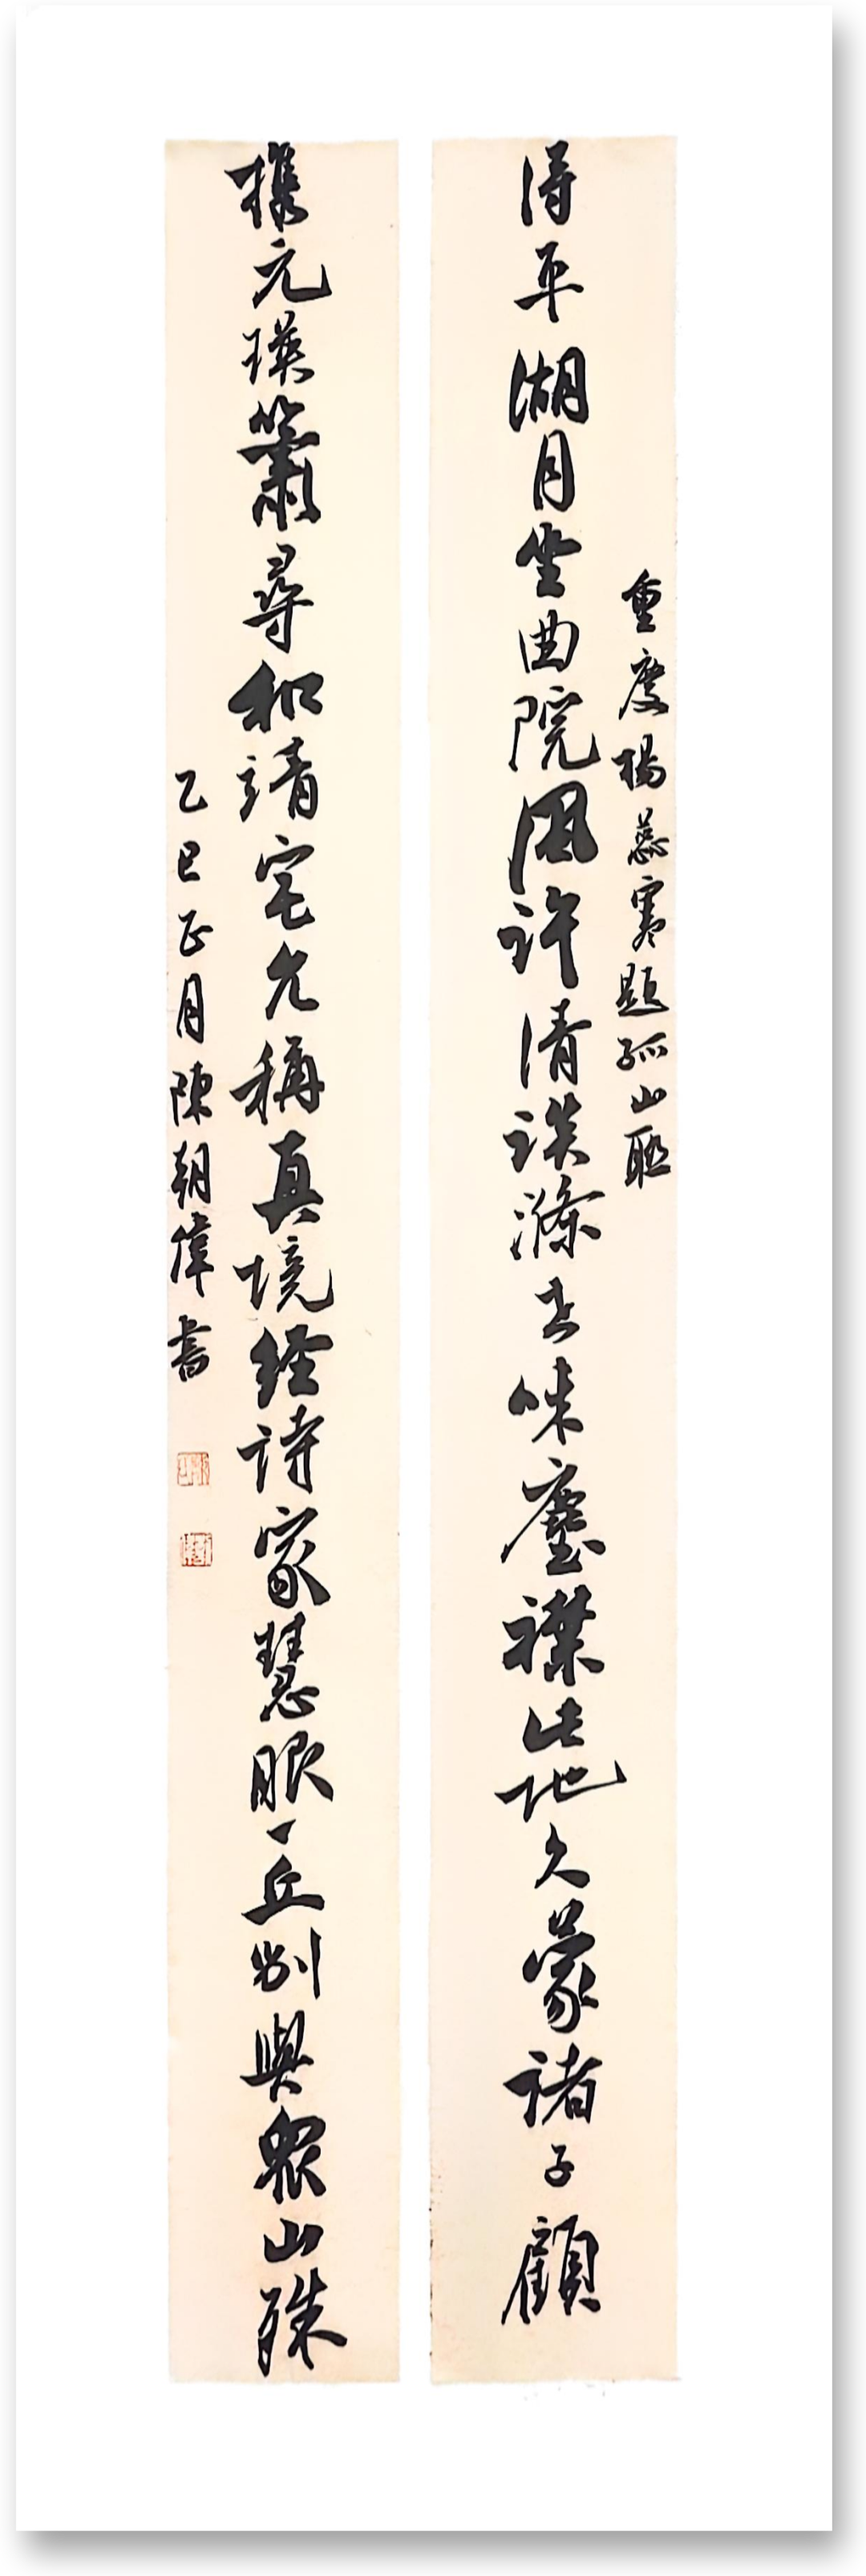 重慶楊蕊寒題孤山聯
得平湖月坐曲院風許清談滌去味塵襟此地久蒙諸子顧
携元瑛簫尋和靖宅允稱真境經詩家慧眼一丘別與眾山殊
乙巳正月陳朝偉書